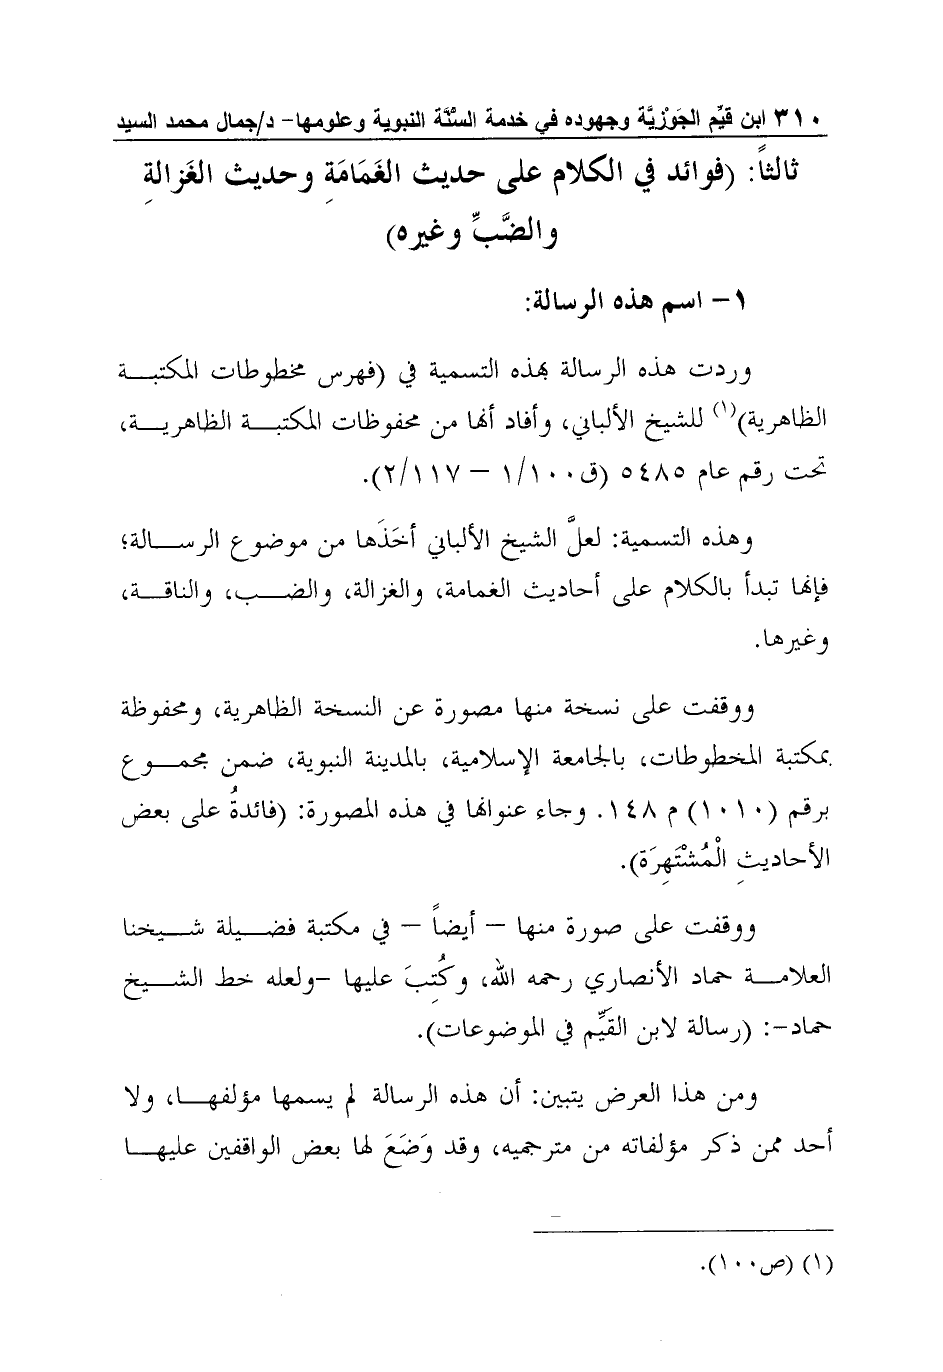 ٣١٠ ابن قيِّم الجَوْزيَّة وجهوده في خدمة السُّنَّة النبوية وعلومها- د/جمال محمد السيد
ثالثاً: (فوائد في الكلام على حديث الغَمَامَةِ وحديث الغَزالةِ
والضَّبِّ وغيره)
١- اسم هذه الرسالة:
وردت هذه الرسالة بهذه التسمية في (فهرس مخطوطات المكتبـــة
الظاهرية)(١) للشيخ الألباني، وأفاد أنها من محفوظات المكتبـــة الظاهريـــة،
تحت رقم عام ٥٤٨٥ (ق١/١٠٠ – ٢/١١٧).
وهذه التسمية: لعلَّ الشيخ الألباني أخَذَها من موضوع الرســـالة؛
فإنها تبدأ بالكلام على أحاديث الغمامة، والغزالة، والضـــب، والناقـــة،
وغيرها.
ووقفت على نسخة منها مصورة عن النسخة الظاهرية، ومحفوظة
بمكتبة المخطوطات، بالجامعة الإسلامية، بالمدينة النبوية، ضمن مجمـــوع
برقم (١٠١٠) م ١٤٨. وجاء عنوانها في هذه المصورة: (فائدةُ على بعض
الأحاديثِ الْمُشْتَهِرَة).
ووقفت على صورة منها – أيضاً – في مكتبة فضـــيلة شـــيخنا
العلامـــة حماد الأنصاري رحمه الله، وكُتِبَ عليها -ولعله خط الشـــيخ
حماد-: (رسالة لابن القَيِّم في الموضوعات).
ومن هذا العرض يتبين: أن هذه الرسالة لم يسمها مؤلفهـــا، ولا
أحد ممن ذكر مؤلفاته من مترجميه، وقد وَضَعَ لها بعض الواقفين عليهـــا
(١) (ص١٠٠).